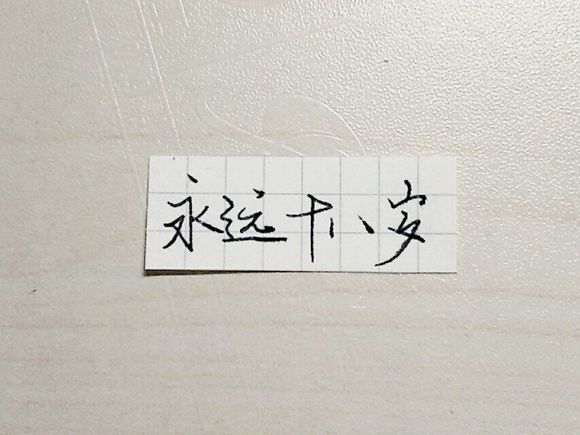 永远十八岁